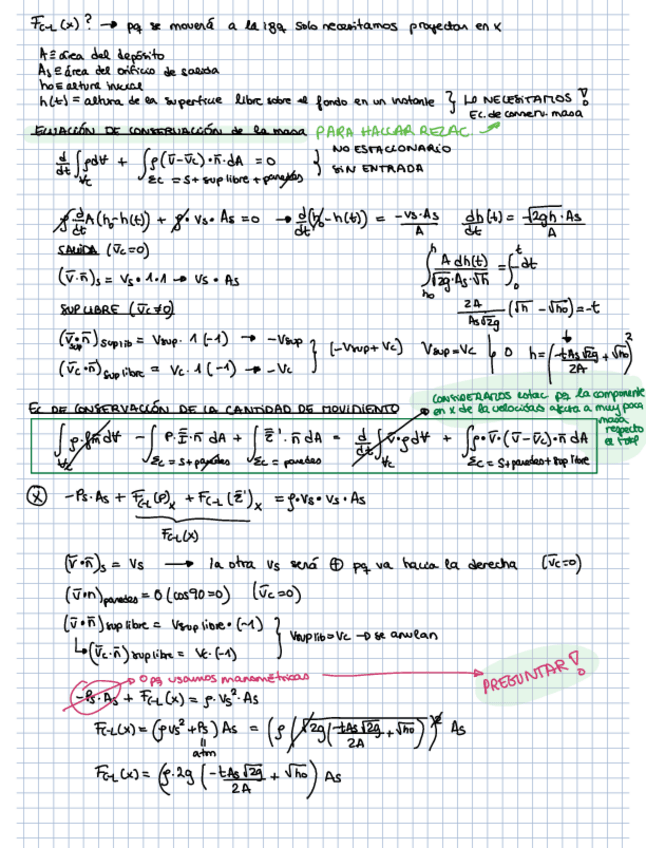 F_C-L(x)? → pq se moverá a la izq solo necesitamos proyectar en x
A ≡ área del depósito
As ≡ área del orificio de salida
ho ≡ altura inicial
h(t) = altura de la superficie libre sobre el fondo en un instante } LO NECESITAMOS!
Ec. de conserv. masa
ECUACIÓN DE CONSERVACIÓN de la masa PARA HALLAR RELAC
d/dt ∫_Vc ρdV + ∫_Σc = S + sup libre + paredes ρ(v̄-v̄c)·n̄·dA = 0 } NO ESTACIONARIO
SIN ENTRADA
ρ·d/dt A(ho-h(t)) + ρ·vs·As = 0 → d/dt(ho-h(t)) = -vs·As/A dh(t)/dt = -√2gh·As/A
SALIDA (v̄c=0)
(v̄·n̄)s = vs·1·1 → vs·As
∫_ho^h A dh(t)/√2g·As·√h = ∫_0^t -dt
SUP LIBRE (v̄c≠0)
2A/As√2g (√h - √ho) = -t
(v̄sup·n̄) sup lib = Vsup·1(-1) → -Vsup } (-Vsup+Vc) Vsup=Vc 0 h = (-tAs√2g/2A + √ho)²
(v̄c·n̄) sup libre = Vc·1(-1) → -Vc
EC DE CONSERVACIÓN DE LA CANTIDAD DE MOVIMIENTO
CONSIDERAMOS estac pq la componente
en x de la velocidad afecta a muy poca
masa
respecto
el total
∫_Vc ρ·f̄m dV - ∫_Σc = S + paredes P·I·n̄ dA + ∫_Σc = paredes τ̄'·n̄ dA = d/dt ∫_Vc v̄·ρdV + ∫_Σc = S + paredes + sup libre ρ·v̄·(v̄-v̄c)·n̄ dA
(X) -Ps·As + F_C-L(P)x + F_C-L(τ̄')x = ρ·vs·vs·As
F_C-L(x)
(v̄·n̄)s = vs → la otra vs será ⊕ pq va hacia la derecha (v̄c=0)
(v̄·n)paredes = 0 (cos90=0) (v̄c=0)
(v̄·n̄) sup libre = Vsup libre·(-1) } Vsup lib = Vc → se anulan
↳(v̄c·n̄) sup libre = Vc·(-1)
→ 0 pq usamos manométricas → PREGUNTAR!
-Ps·As + F_C-L(x) = ρ·vs²·As
F_C-L(x) = (ρvs² + Ps) As = (ρ(√2g(-tAs√2g/2A + √ho))² As
atm
F_C-L(x) = (ρ·2g(-tAs√2g/2A + √ho) As